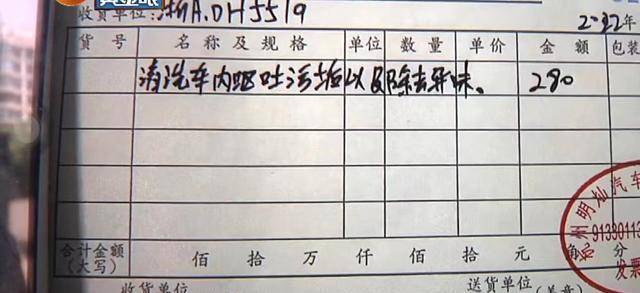 收货单位:浙A.DH5519 2022年
货号 名称及规格 单位 数量 单价 金额 包装
清洗车内呕吐污垢以及除去异味。 280
合计金额(大写) 佰 拾 万 仟 佰 拾 元 角 分
州明灿汽车
9133011
发票
收货单位 送货单位(盖章)